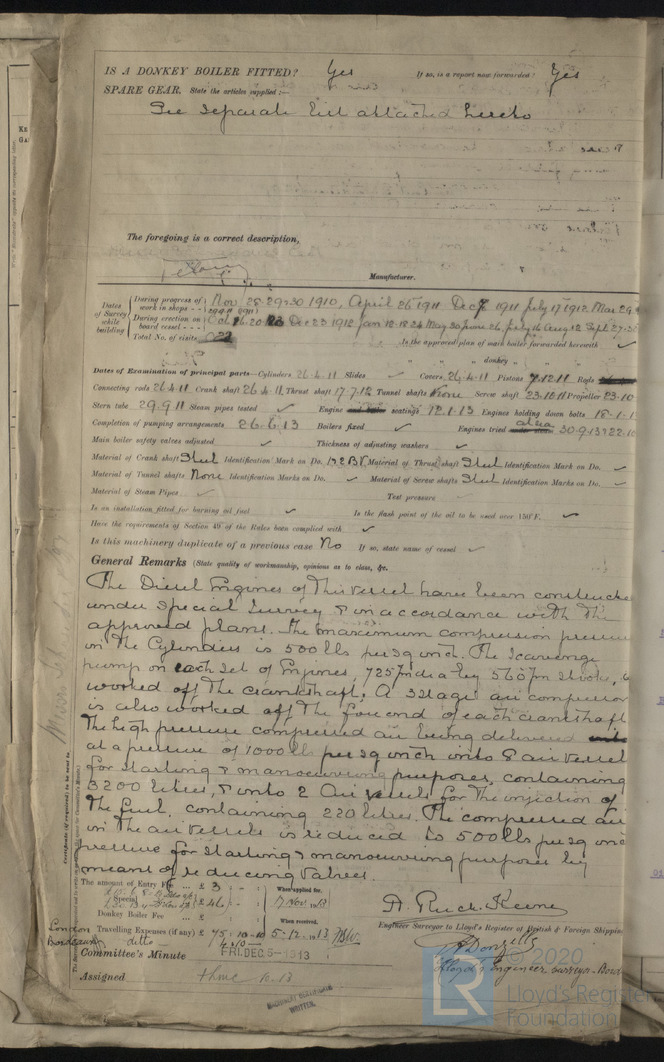 IS A DONKEY BOILER FITTED? Yes If so, is a report now forwarded? Yes
SPARE GEAR. State the articles supplied:—
See separate list attached hereto
The foregoing is a correct description,
Manufacturer.
Dates of Survey while building
During progress of work in shops - - Nov 28-29-30 1910, April 26 1911 Dec 7 1911 July 17 1912 Mar 29
During erection on board vessel - - - Dec 23 1912 Jan
Total No. of visits
Is the approved plan of main boiler forwarded herewith ✓
" " " donkey " " "
Dates of Examination of principal parts—Cylinders 26.4.11 Slides ✓ Covers 26.4.11 Pistons 7.12.11 Rods
Connecting rods 26.4.11 Crank shaft 26.4.11 Thrust shaft 17.7.12 Tunnel shafts None Screw shaft 23.10.11 Propeller 23-10
Stern tube 29.9.11 Steam pipes tested ✓ Engine seatings 12.1.13 Engines holding down bolts 18-1-1
Completion of pumping arrangements 26.6.13 Boilers fixed ✓ Engines tried at sea 30-9-13 & 22-10
Main boiler safety valves adjusted ✓ Thickness of adjusting washers ✓
Material of Crank shaft Steel Identification Mark on Do. Material of Thrust shaft Steel Identification Mark on Do. ✓
Material of Tunnel shafts None Identification Marks on Do. ✓ Material of Screw shafts Steel Identification Marks on Do. ✓
Material of Steam Pipes ✓ Test pressure ✓
Is an installation fitted for burning oil fuel ✓ Is the flash point of the oil to be used over 150°F. ✓
Have the requirements of Section 49 of the Rules been complied with ✓
Is this machinery duplicate of a previous case No If so, state name of vessel ✓
General Remarks (State quality of workmanship, opinions as to class, &c.
The Diesel Engines of this vessel have been constructed
under Special Survey & in accordance with the
approved plans. The maximum compression pressure
in the Cylinders is 500 lbs per sq inch. The Scavenge
pump on each set of Engines, 725 m/m dia by 560 m/m stroke, is
worked off the crankshaft. A 3 stage air compressor
is also worked off the fore end of each crankshaft
the high pressure compressed air being delivered
at a pressure of 1000 lbs per sq inch into 8 air vessels
for starting & manoeuvring purposes, containing
3200 litres, & into 2 Air vessels for the injection of
the fuel, containing 220 litres. The compressed air
in the air vessels is reduced to 500 lbs per sq inch
pressure for starting & manoeuvring purposes by
means of reducing valves.
The amount of Entry Fee .. £ 3 : :
Special .. £ 46 : :
Donkey Boiler Fee .. £ : :
Travelling Expenses (if any) £ 75 : 10 - 10
When applied for, 7 Nov. 1913
When received, 5-12-1913
London
Bordeaux ditto
Engineer Surveyor to Lloyd's Register of British & Foreign Shipping
Lloyd's Engineer Surveyor - Bord
Committee's Minute FRI. DEC 5 - 1913
Assigned
MACHINERY CERTIFICATE
WRITTEN.
Certificate (if required) to be sent to
LR
© 2020
Lloyd's Register
Foundation